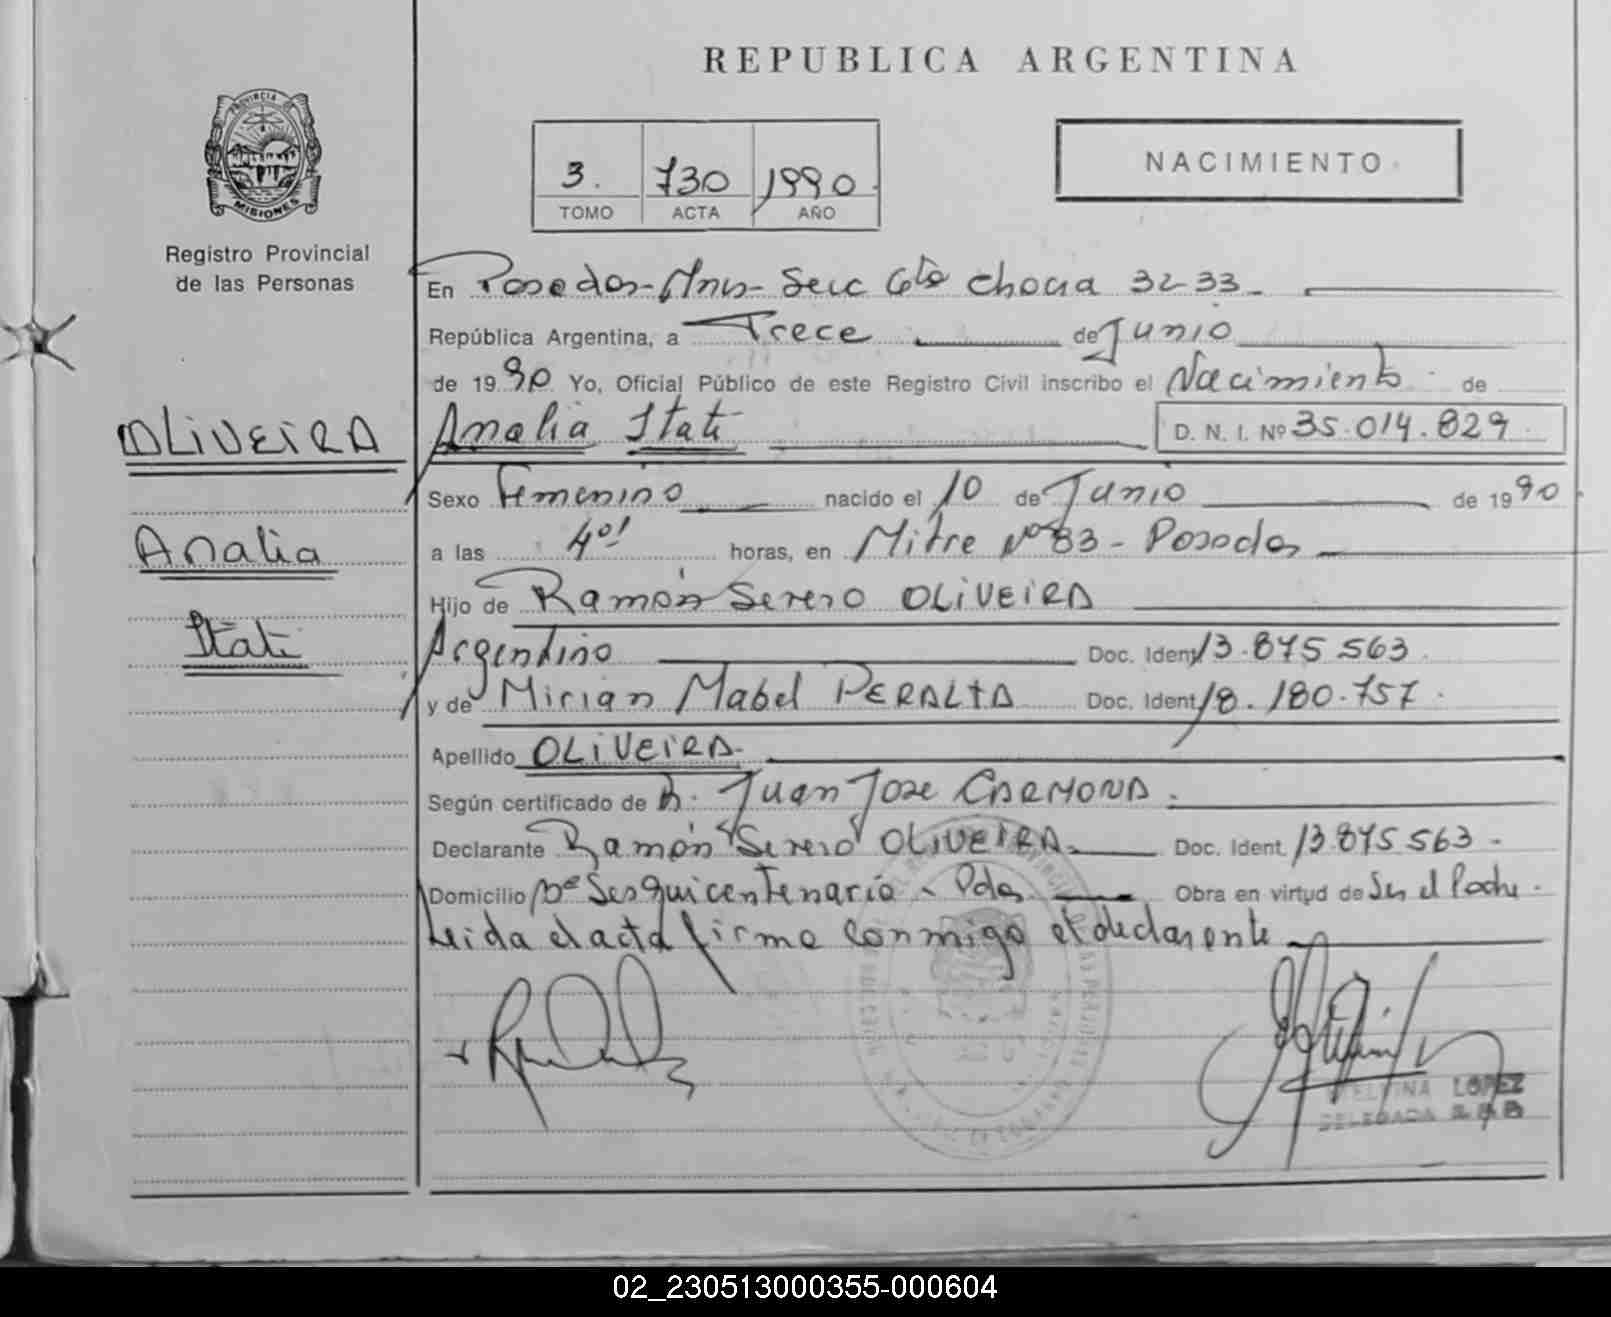 REPUBLICA ARGENTINA
PROVINCIA DE
MISIONES
Registro Provincial
de las Personas
3. 730 1990
TOMO ACTA AÑO
NACIMIENTO
En Posadas - Mnes - Secc 6ta Chacra 32-33
República Argentina, a Trece de Junio
de 1990 Yo, Oficial Público de este Registro Civil inscribo el Nacimiento de
OLIVEIRA
Analia Itati D. N. I. Nº 35.014.829
Sexo Femenino nacido el 10 de Junio de 1990
Analia
a las horas, en Mitre Nº 83 - Posadas
Hijo de Ramón Severo OLIVEIRA
Itati
Argentino Doc. Ident. 13.875.563
y de Mirian Mabel PERALTA Doc. Ident. 18.180.757
Apellido OLIVEIRA
Según certificado de Dr. Juan Jose CARMONA
Declarante Ramón Severo OLIVEIRA Doc. Ident. 13.875.563
Domicilio Bº Sesquicentenario - Pdas Obra en virtud de Ser el Padre
Leida el acta firma conmigo el declarante
LOPEZ
DELEGADA
02_230513000355-000604